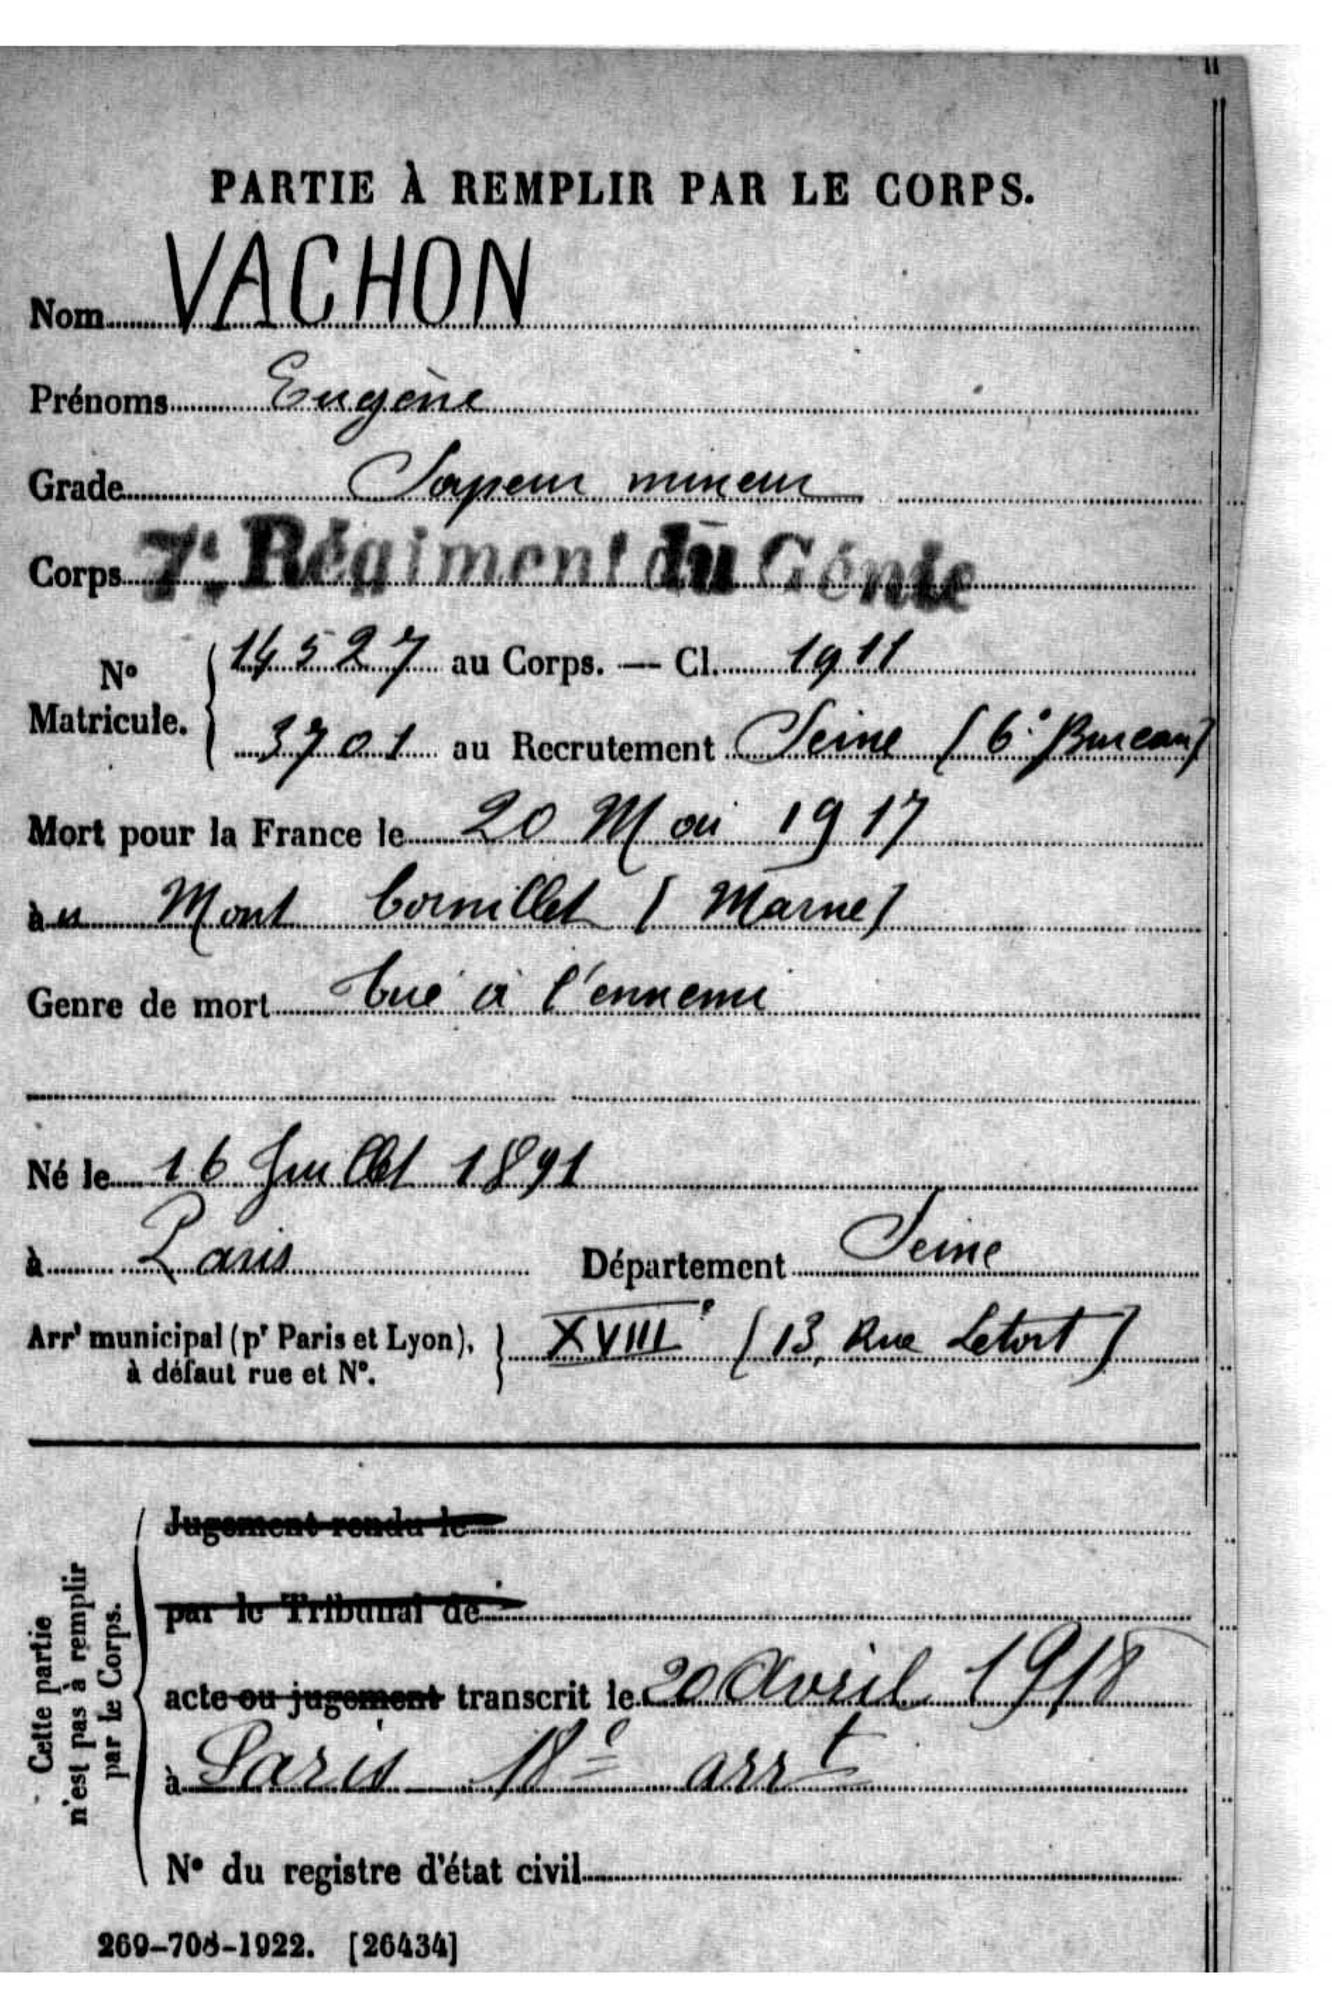 PARTIE À REMPLIR PAR LE CORPS.
Nom VACHON
Prénoms Eugène
Grade Sapeur mineur
Corps 7e Régiment du Génie
No Matricule. { 14527 au Corps. — Cl. 1911
3701 au Recrutement Seine (6e Bureau)
Mort pour la France le 20 Mai 1917
au Mont Cornillet (Marne)
Genre de mort tué à l'ennemi
Né le 16 Juillet 1891
à Paris Département Seine
Arrt municipal (pr Paris et Lyon), } XVIIIe (13, Rue Letort)
à défaut rue et No.
Cette partie
n'est pas à remplir
par le Corps.
Jugement rendu le
par le Tribunal de
acte ou jugement transcrit le 20 Avril 1918
à Paris 18e arrt
No du registre d'état civil
269-708-1922. [26434]